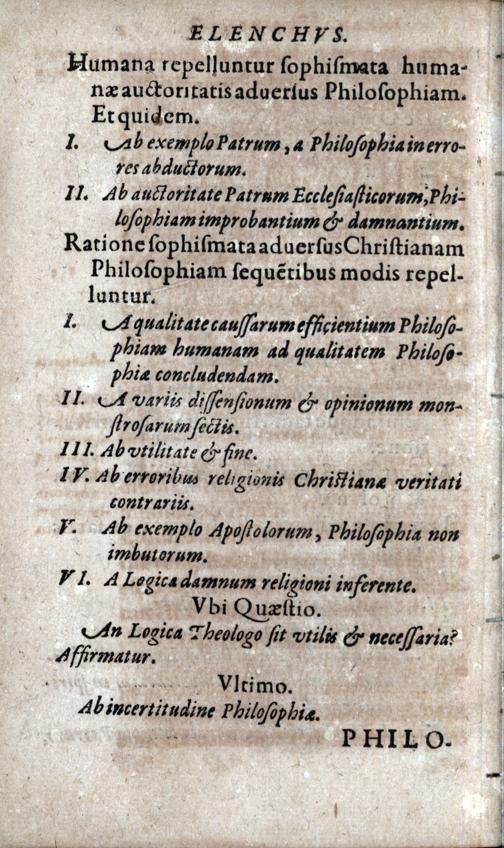 ELENCHVS.
Humana repelluntur ſophiſmata huma-
næ auctoritatis aduerſus Philoſophiam.
Et quidem.
I. Ab exemplo Patrum, a Philoſophia in erro-
res abductorum.
II. Ab auctoritate Patrum Eccleſiaſticorum, Phi-
loſophiam improbantium & damnantium.
Ratione ſophiſmata aduerſus Chriſtianam
Philoſophiam ſequẽtibus modis repel-
luntur.
I. A qualitate cauſſarum efficientium Philoſo-
phiam humanam ad qualitatem Philoſo-
phiæ concludendam.
II. A variis diſſenſionum & opinionum mon-
ſtroſarum ſectis.
III. Ab vtilitate & fine.
IV. Ab erroribus religionis Chriſtianæ veritati
contrariis.
V. Ab exemplo Apoſtolorum, Philoſophia non
imbutorum.
VI. A Logica damnum religioni inferente.
Vbi Quæſtio.
An Logica Theologo ſit vtilis & neceſſaria?
Affirmatur.
Vltimo.
Ab incertitudine Philoſophiæ.
PHILO-